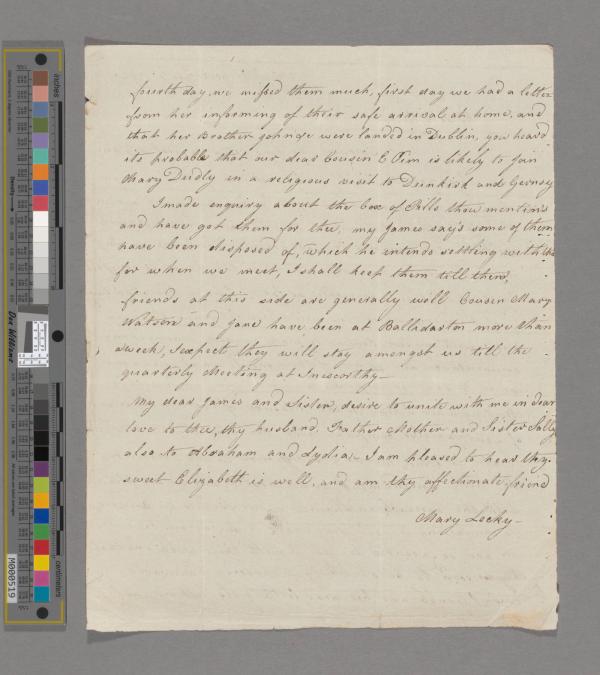 fourth day, we missed them much, first day we had a letter
from her informing of their safe arrival at home, and
that her Brother were landed in Dublin, you heard
its probable that our dear Cousin E Pim is likely to join
Mary Dudly in a religious visit to Dunkirk and Gernsy
I made enquiry about the box of Pills thou mention's
and have got them for thee, my James say's some of them
have been disposed of, which he intends settling with thee
for when we meet, I shall keep them till then,
friends at this side are generally well Cousin Mary
Watson and Jane have been at Ballidarton more than
a week, I expect they will stay amongst us till the
quarterly Meeting at Inescorthy—
My dear James and Sister, desire to unite with me in dear
love to thee, thy husband, Father Mother and Sister Sally
also to Abraham and Lydia,- I am pleased to hear thy
sweet Elizabeth is well, and am thy affectionate friend
Mary Lecky—
inches
centimeters
Don Williams
M000519